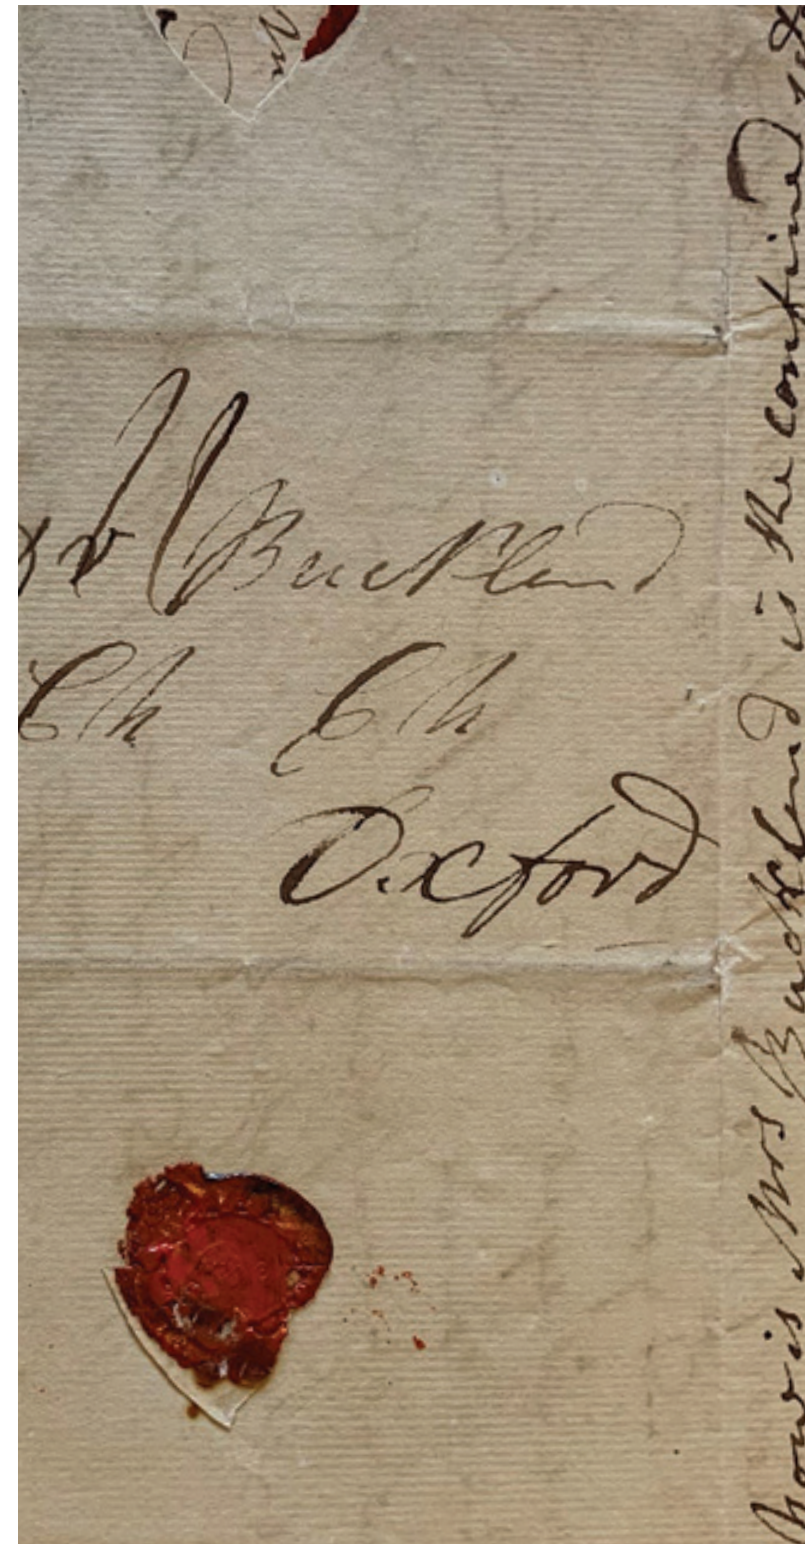 Dr Buckland
Ch Ch
Oxford
how is Mrs Buckland is the confined